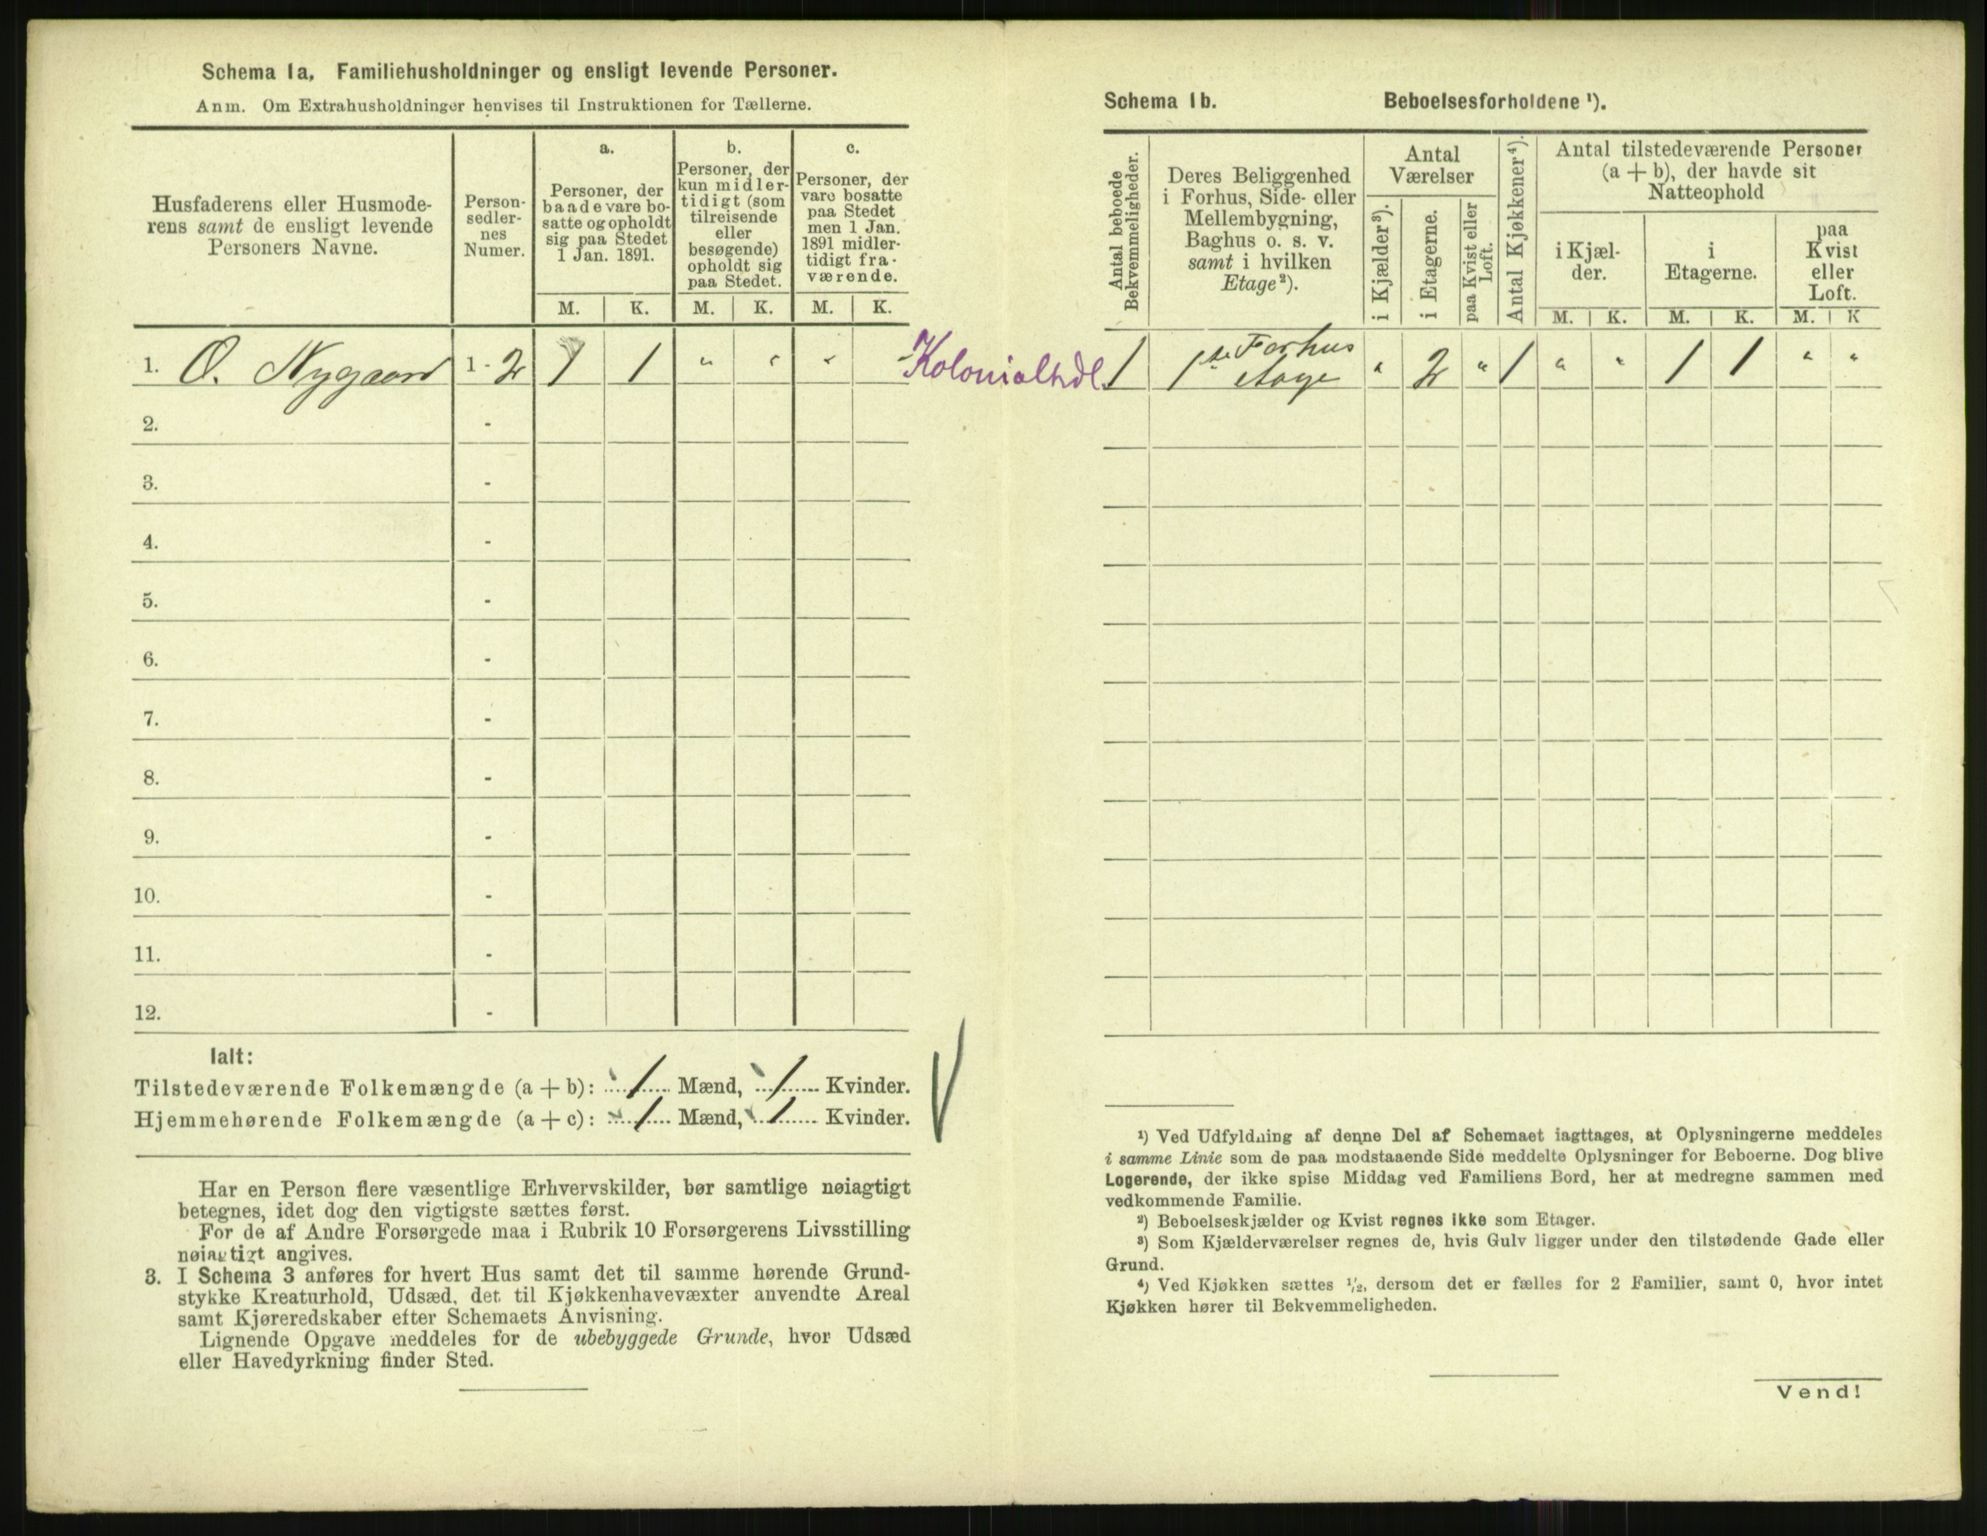 Schema 1a, Familiehusholdninger og ensligt levende Personer.
Anm. Om Extrahusholdninger henvises til Instruktionen for Tællerne.
Husfaderens eller Husmode-
rens samt de ensligt levende
Personers Navne.
Person-
sedler-
nes
Numer.
a.
Personer, der
baade vare bo-
satte og opholdt
sig paa Stedet
1 Jan. 1891.
b.
Personer, der
kun midler-
tidigt (som
tilreisende
eller
besøgende)
opholdt sig
paa Stedet.
c.
Personer, der
vare bosatte
paa Stedet
men 1 Jan.
1891 midler-
tidigt fra-
værende.
M. K. M. K. M. K.
1. O. Nygaard 1 - 2 1 1 " " "
Kolonialhdl.
2. -
3. -
4. -
5. -
6. -
7. -
8. -
9. -
10. -
11. -
12. -
Ialt:
Tilstedeværende Folkemængde (a + b): 1 Mænd, 1 Kvinder.
Hjemmehørende Folkemængde (a + c): 1 Mænd, 1 Kvinder.
Har en Person flere væsentlige Erhvervskilder, bør samtlige nøiagtigt
betegnes, idet dog den vigtigste sættes først.
For de af Andre Forsørgede maa i Rubrik 10 Forsørgerens Livsstilling
nøiagtigt angives.
3. I Schema 3 anføres for hvert Hus samt det til samme hørende Grund-
stykke Kreaturhold, Udsæd, det til Kjøkkenhavevæxter anvendte Areal
samt Kjøreredskaber efter Schemaets Anvisning.
Lignende Opgave meddeles for de ubebyggede Grunde, hvor Udsæd
eller Havedyrkning finder Sted.
Schema 1b. Beboelsesforholdene ¹).
Antal beboede
Bekvemmeligheder.
Deres Beliggenhed
i Forhus, Side- eller
Mellembygning,
Baghus o. s. v.
samt i hvilken
Etage²).
Antal
Værelser
i Kjælder³).
i Etagerne.
paa Kvist eller
Loft.
Antal Kjøkkener⁴).
Antal tilstedeværende Personer
(a + b), der havde sit
Natteophold
i Kjæl-
der.
i
Etagerne.
paa
Kvist
eller
Loft.
M. K. M. K. M. K
1 1ste Forhus
etage " 2 " 1 " " 1 1 " "
¹) Ved Udfyldning af denne Del af Schemaet iagttages, at Oplysningerne meddeles
i samme Linie som de paa modstaaende Side meddelte Oplysninger for Beboerne. Dog blive
Logerende, der ikke spise Middag ved Familiens Bord, her at medregne sammen med
vedkommende Familie.
²) Beboelseskjælder og Kvist regnes ikke som Etager.
³) Som Kjælderværelser regnes de, hvis Gulv ligger under den tilstødende Gade eller
Grund.
⁴) Ved Kjøkken sættes ½, dersom det er fælles for 2 Familier, samt 0, hvor intet
Kjøkken hører til Bekvemmeligheden.
Vend!